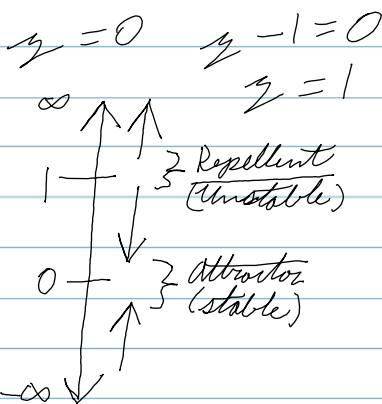 y = 0 y - 1 = 0
y = 1
∞
1 } Repellent
(Unstable)
0 } Attractor
(stable)
-∞